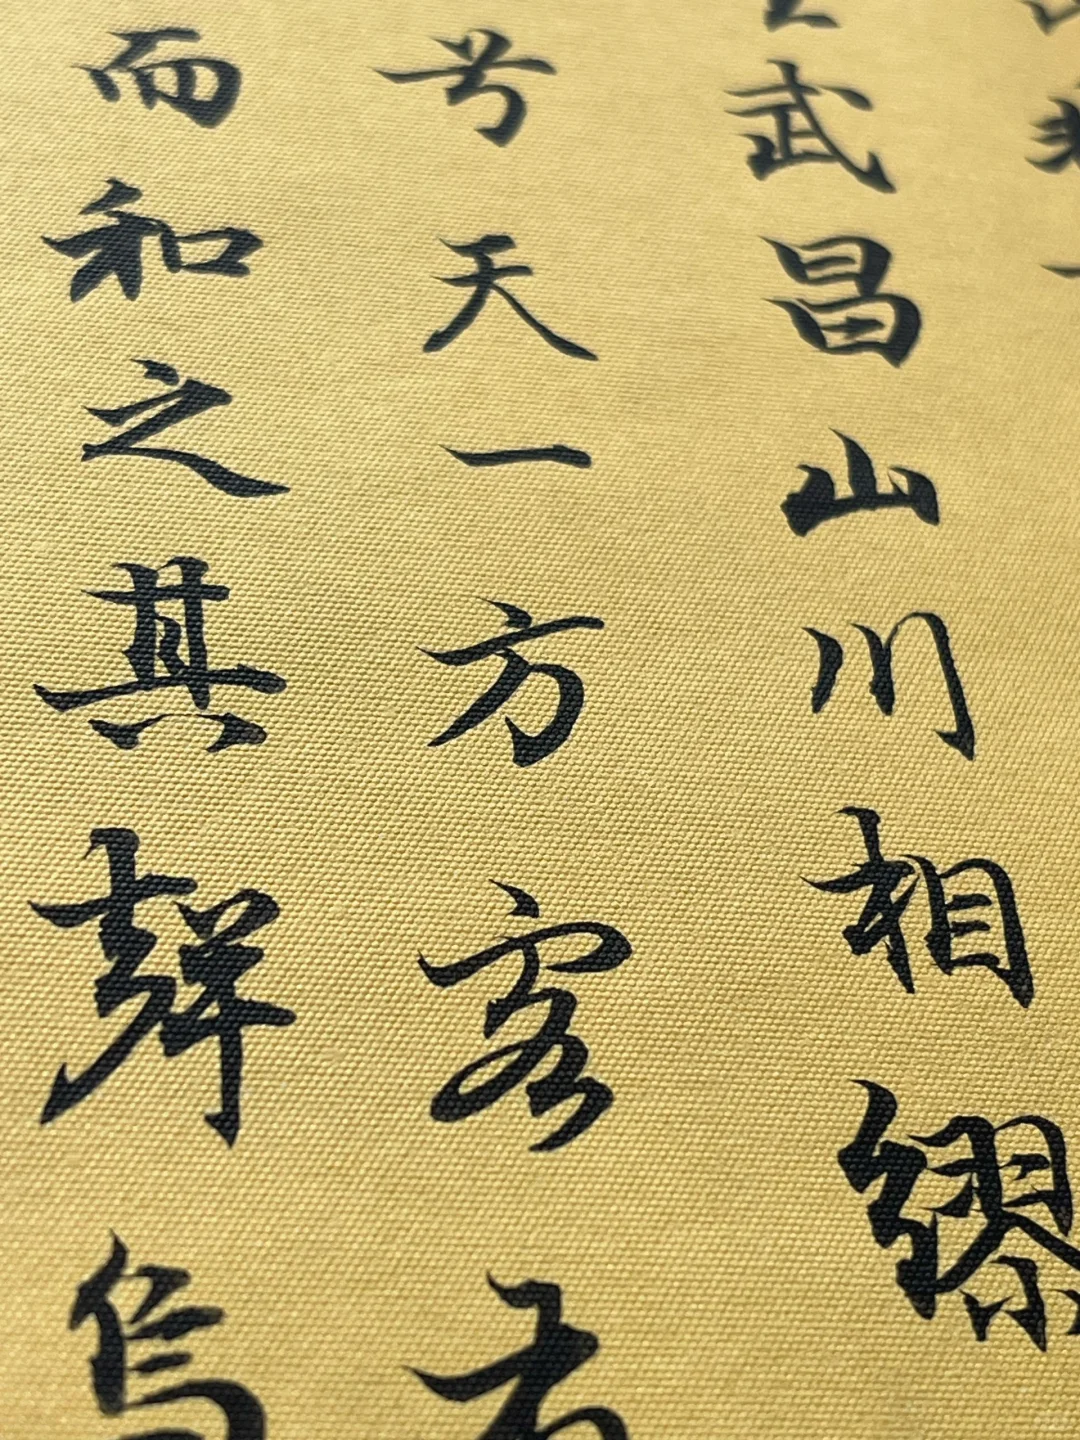 武昌山川相繆
兮天一方客有
而和之其聲